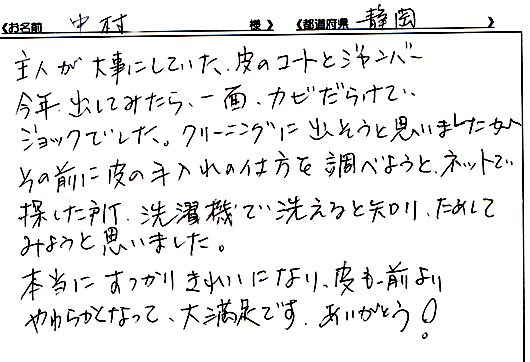 《お名前 中村 様》 《都道府県 静岡 》
主人が大事にしていた、皮のコートとジャンバー
今年、出してみたら、一面、カビだらけで、
ショックでした。クリーニングに出そうと思いましたが
その前に皮の手入れの仕方を調べようと、ネットで
探した所、洗濯機で洗えると知り、ためして
みようと思いました。
本当にすっかりきれいになり、皮も前より
やわらかくなって、大満足です。ありがとう!